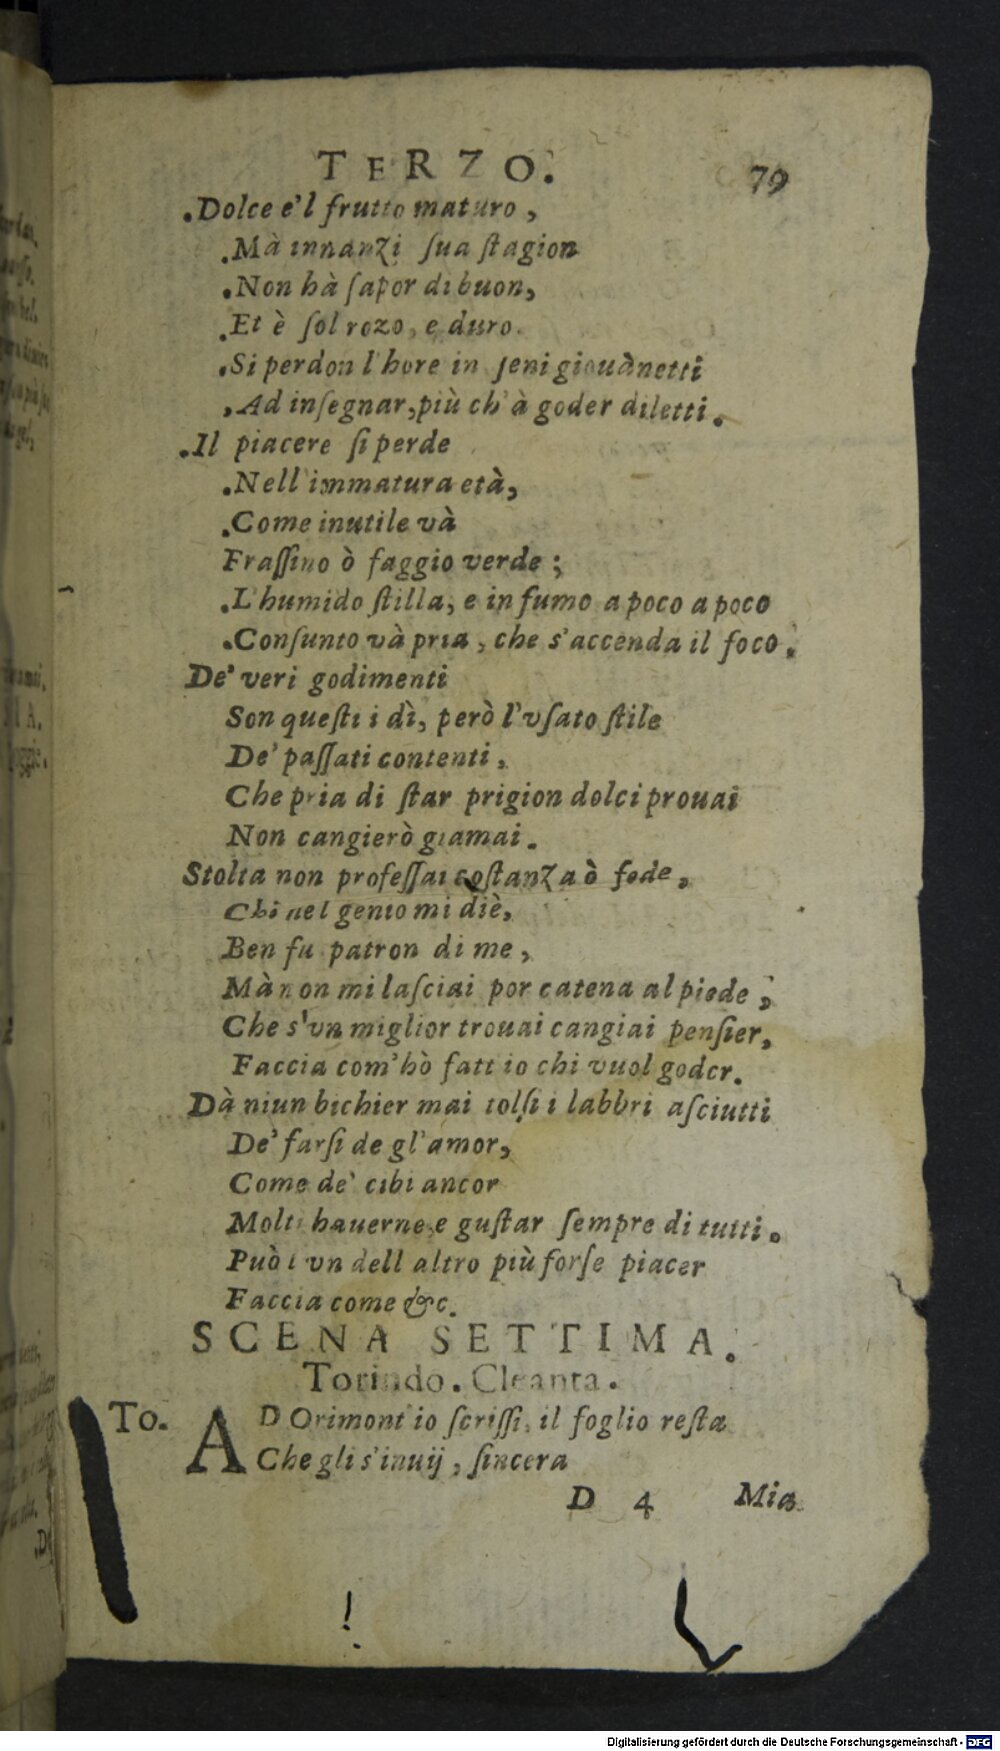 TERZO. 79
.Dolce e'l frutto maturo,
.Mà innanzi ſua ſtagion
.Non hà ſapor di buon,
.Et è ſol rozo, e duro.
.Si perdon l'hore in ſeni giouanetti
,Ad inſegnar, più ch'à goder diletti.
.Il piacere ſi perde
.Nell'immatura età,
.Come inutile và
Fraſſino ò faggio verde;
.L'humido ſtilla, e in fumo a poco a poco
.Conſunto và pria, che s'accenda il foco.
De' veri godimenti
Son queſti i dì, però l'vſato ſtile
De' paſſati contenti,
Che pria di ſtar prigion dolci prouai
Non cangierò giamai.
Stolta non profeſſai coſtanza ò fede,
Chi nel genio mi diè,
Ben fu patron di me,
Mà non mi laſciai por catena al piede;
Che s'vn miglior trouai cangiai penſier,
Faccia com'hò fatt io chi vuol goder.
Dà niun bichier mai tolſi i labbri aſciutti
De' farſi de gl'amor,
Come de' cibi ancor
Molti hauerne, e guſtar ſempre di tutti.
Può l vn dell altro più forſe piacer
Faccia come &c.
SCENA SETTIMA.
Torindo. Cleanta.
To. AD Orimont' io ſcriſſi, il foglio reſta
Che gli s'inuij, ſincera
D 4 Mia
Digitalisierung gefördert durch die Deutsche Forschungsgemeinschaft - DFG